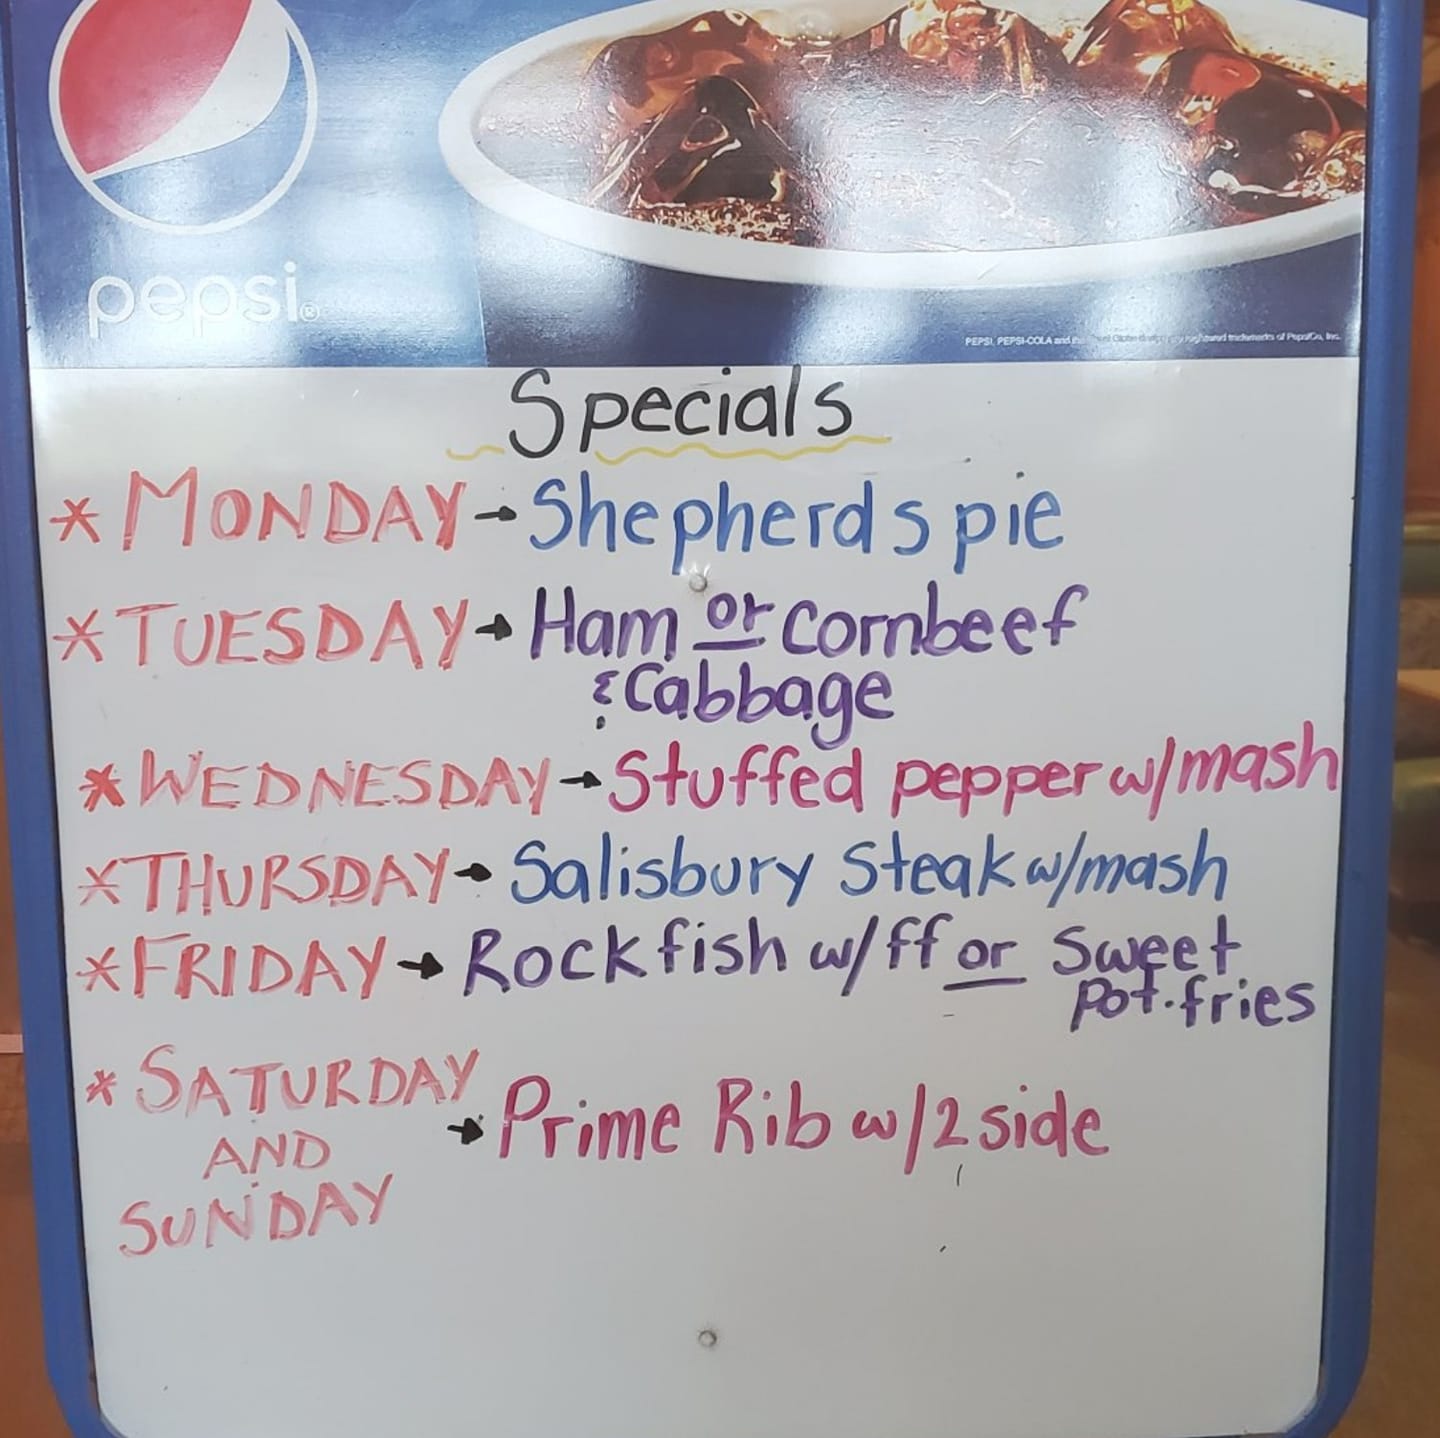 pepsi®
PEPSI, PEPSI-COLA and the Pepsi Globe design are registered trademarks of PepsiCo, Inc.
Specials
* MONDAY → Shepherds pie
* TUESDAY → Ham or Cornbeef
& Cabbage
* WEDNESDAY → Stuffed pepper w/mash
* THURSDAY → Salisbury Steak w/mash
* FRIDAY → Rockfish w/ff or Sweet
pot. fries
* SATURDAY
AND
SUNDAY
→ Prime Rib w/2 side